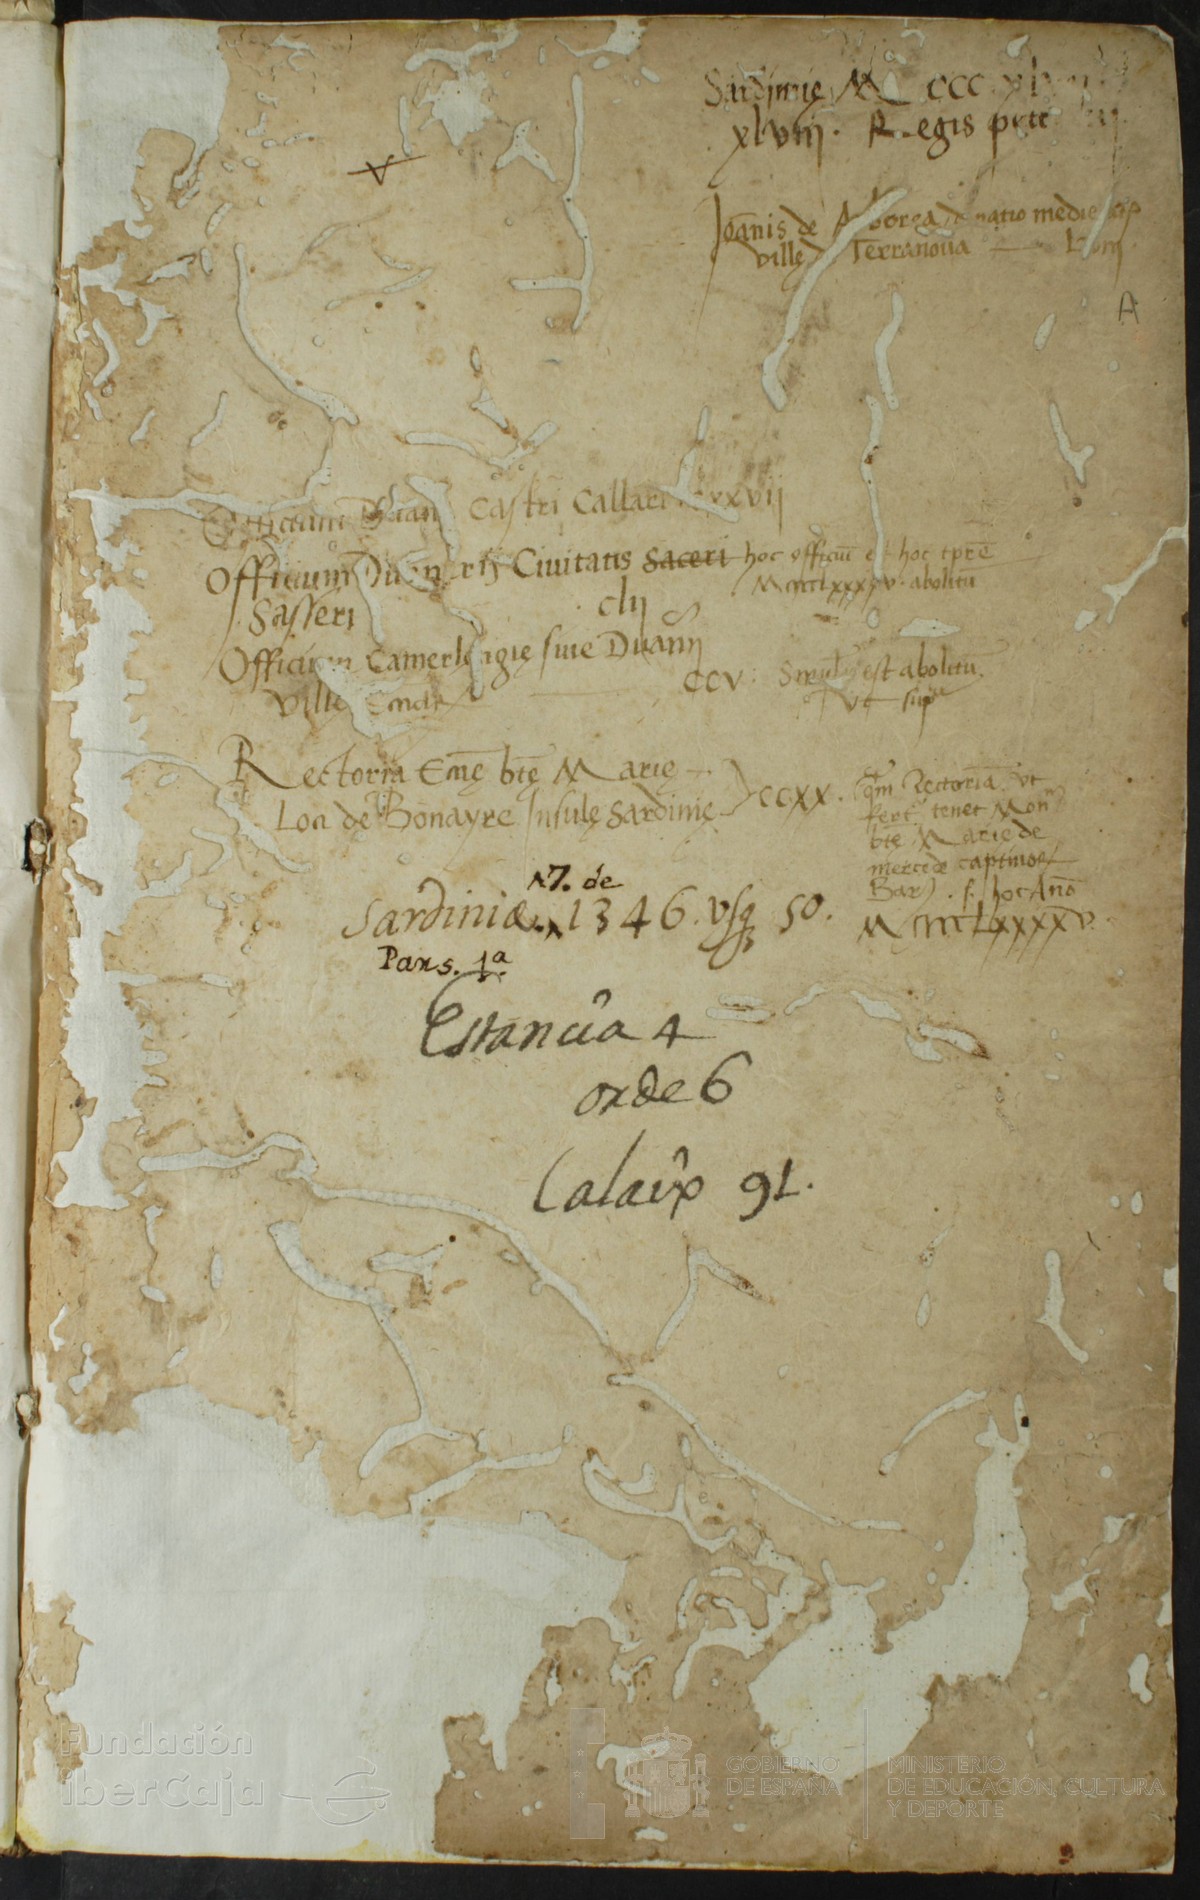 Sardinię M CCC xlv
xlviij. Regis petr
Joānis de Arborea donatio medię
villę Terranoua —
A
V
Officium Duan Castri Callari xxvij
Officium Duanerij Ciuitatis Saceri hoc officiū est hoc tpre
Mcccclxxxxv. abolitū
Sasseri clij
Officium Camerlengię siue Duanij
CCV. Simil est abolitū,
villę ut sup
Rectoria Ecclię btę Marię
Loci de Bonayre Insulę Sardinię CCXX.
qm Rectoria ut
fert tenet Mon
btę Marie de
mercede captiuor
Bar). s. hoc Año
MccccLxxxxv.
17. de
Sardiniæ 1346. vsq 50.
Pars. 1a.
Estancia 4
orde 6
Calaix 91.
Fundación
iberCaja
GOBIERNO
DE ESPAÑA
MINISTERIO
DE EDUCACIÓN, CULTURA
Y DEPORTE